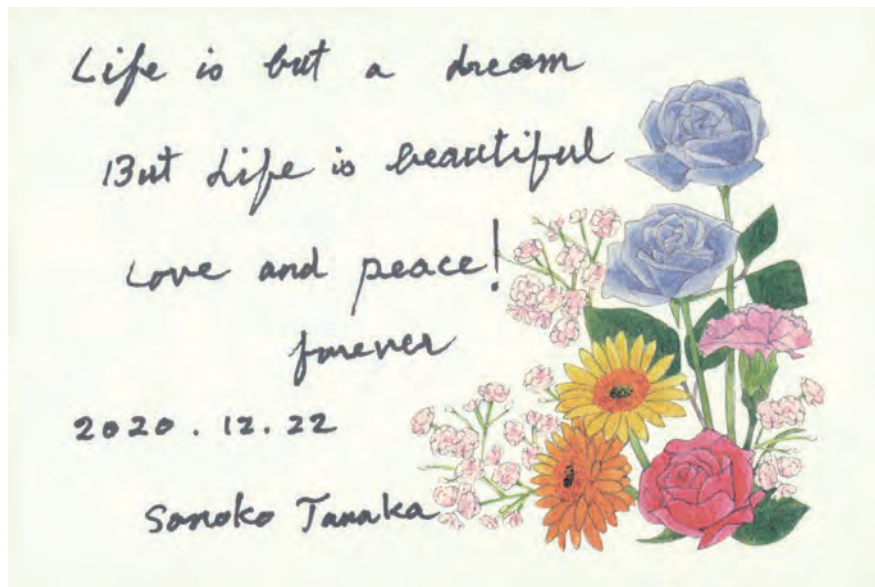 Life is but a dream
But Life is beautiful
Love and peace!
forever
2020.12.22
Sonoko Tanaka